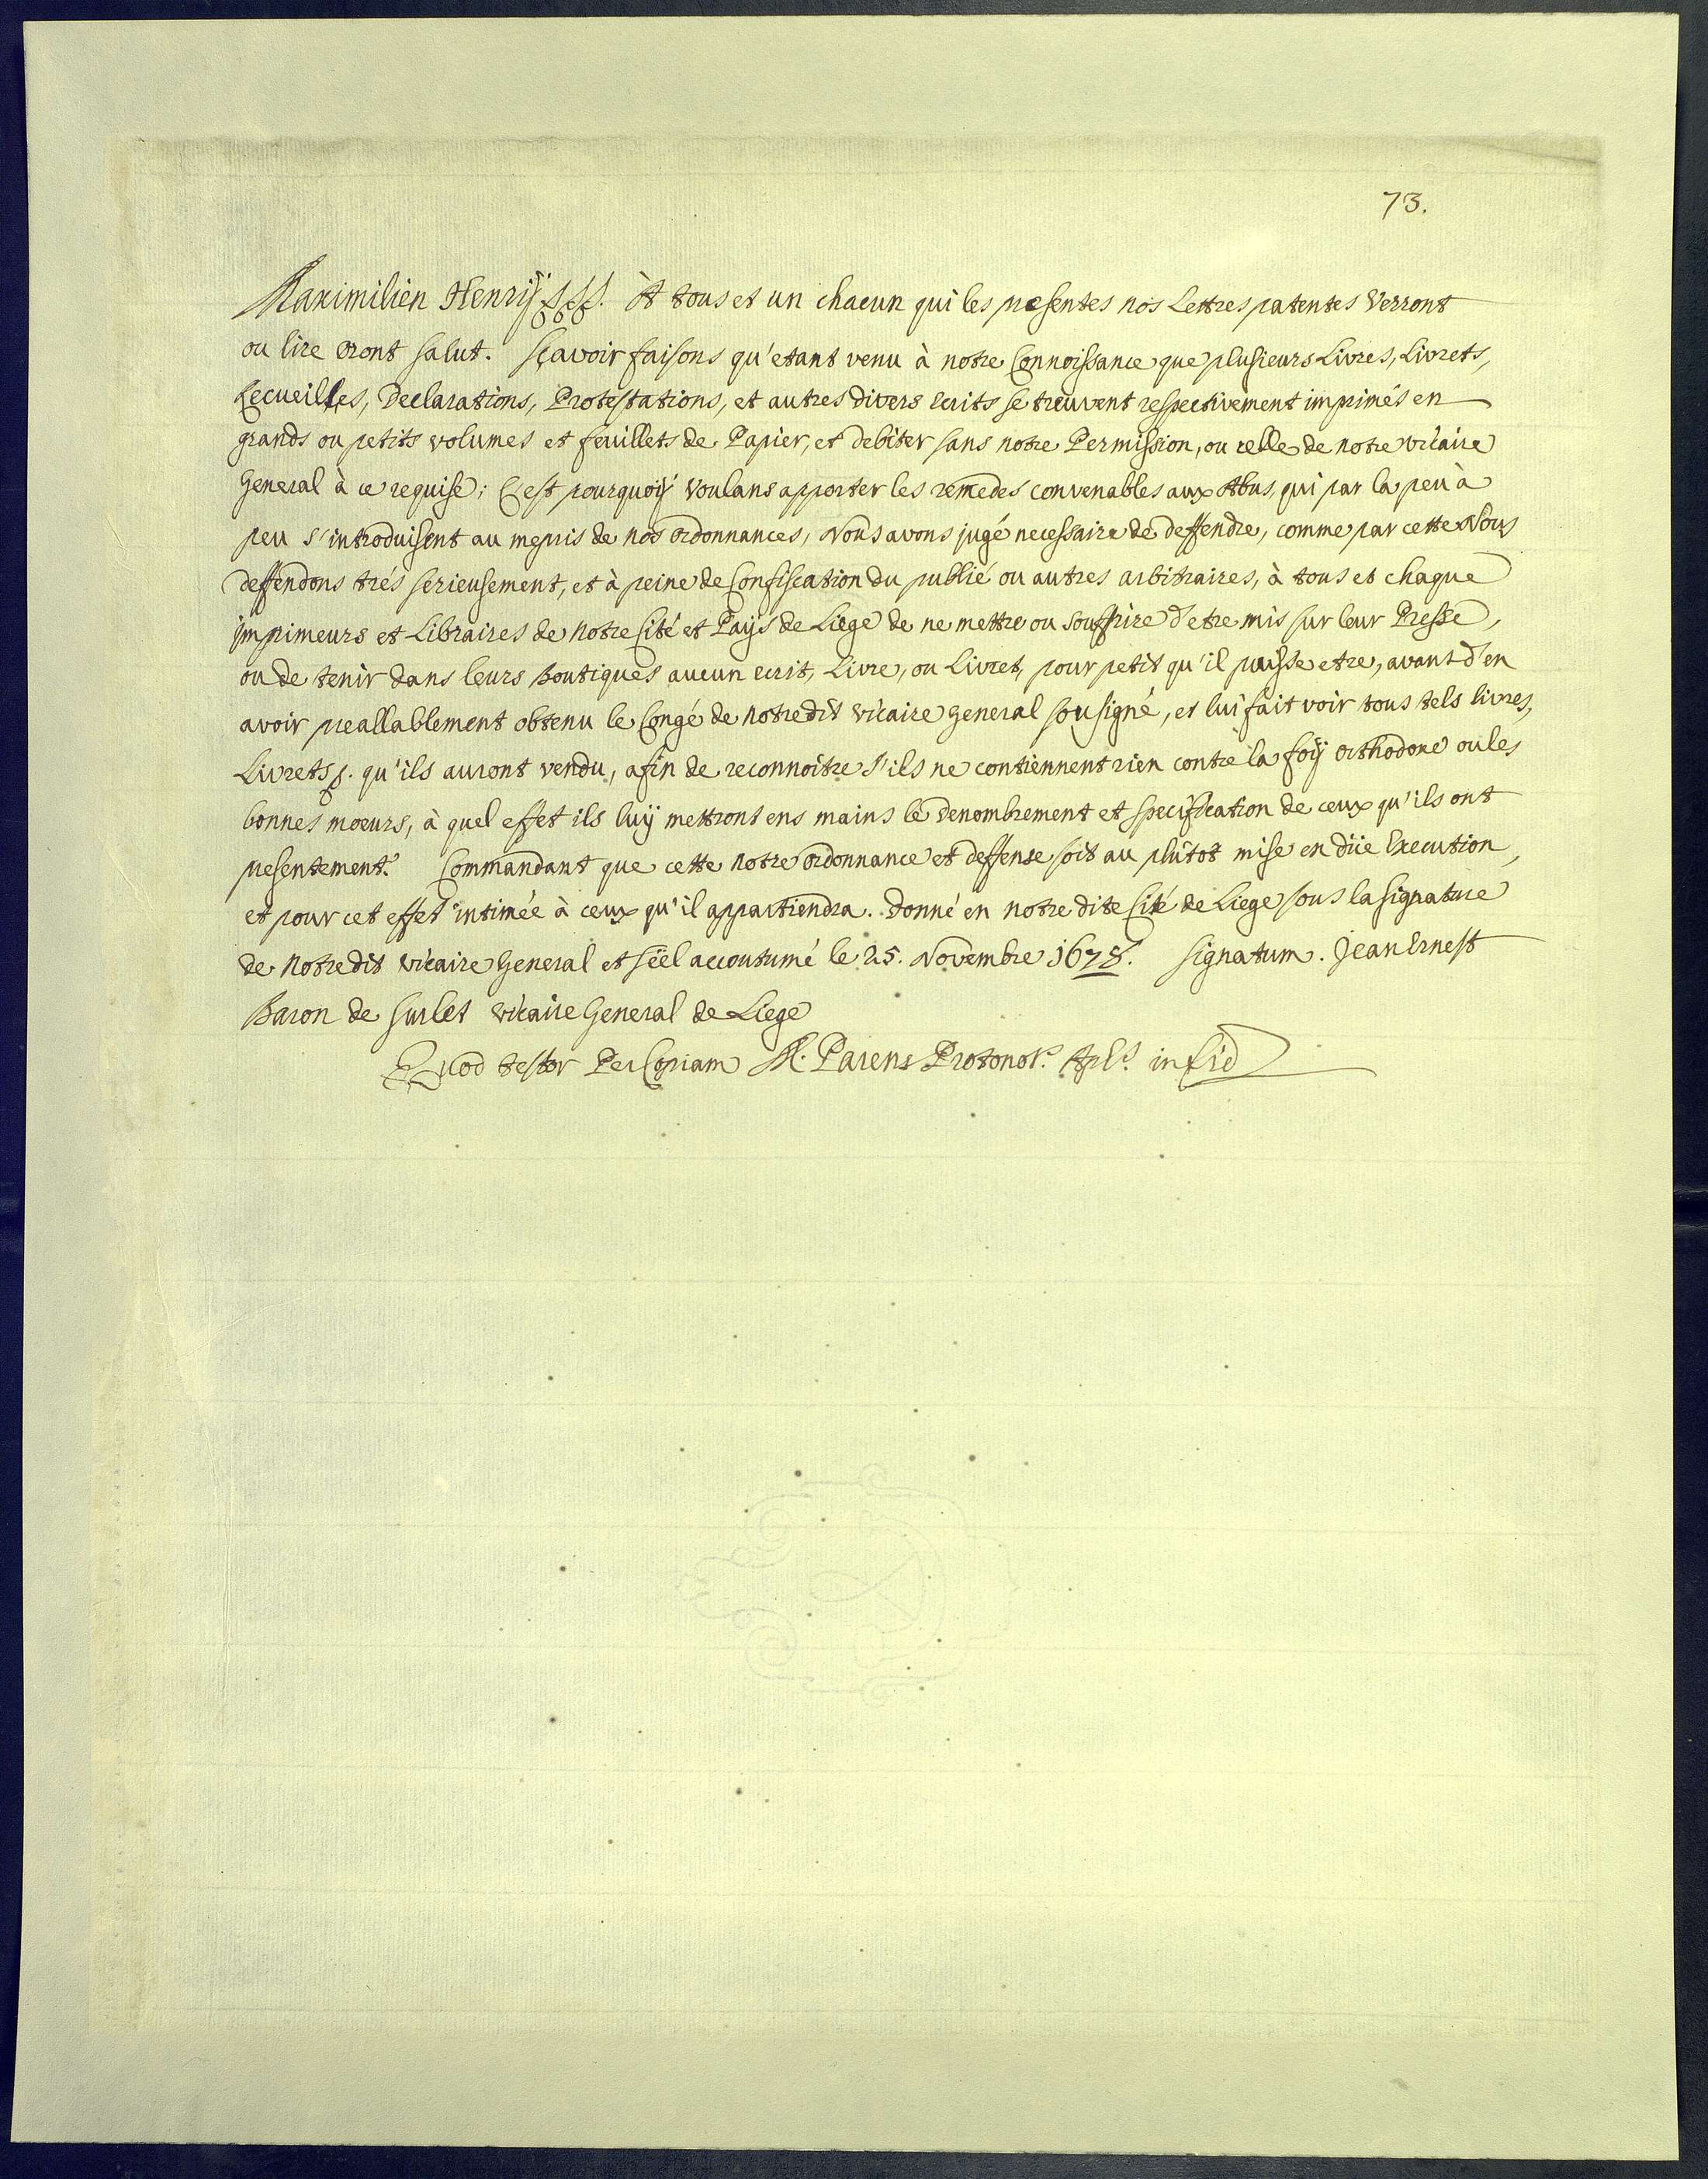 73.
Maximilien Henrÿ &c &c &c. À tous et un chacun qui les presentes nos Lettres patentes Verront
ou lire oront salut. Sçavoir faisons qu'etant venu à notre Connoissance que plusieurs Livres, Livrets,
Recueilles, Declarations, Protestations, et autres divers ecrits se treuvent respectivement imprimés en
grands ou petits volumes et feuillets de Papier, et debiter sans notre Permission, ou celle de notre vicaire
General à ce requise; C'est pourquoÿ Voulans apporter les remedes convenables aux Abus, qui par la peu à
peu s'introduisent au mepris de nos ordonnances, Nous avons jugé necessaire de deffendre, comme par cette Nous
deffendons trés serieusement, et à peine de Confiscation du publié ou autres arbitraires, à tous et chaque
imprimeurs et Libraires de notre Cité et Paÿs de Liége de ne mettre ou souffrire d'etre mis sur leur Presse,
ou de tenir dans leurs Boutiques aucun ecrit, Livre, ou Livret, pour petit qu'il puisse etre, avant d'en
avoir preallablement obtenu le Congé de notredit vicaire General sousigné, et lui fait voir tous tels livres,
Livrets &. qu'ils auront vendu, afin de reconnoitre s'ils ne contiennent rien contre la foÿ orthodoxe ou les
bonnes moeurs, à quel effet ils luÿ mettront ens mains le denombrement et specification de ceux qu'ils ont
presentement. Commandant que cette notre ordonnance et deffense soit au plûtot mise en düe Execution,
et pour cet effet intimée à ceux qu'il appartiendra. Donné en notre dite Cité de Liege sous la signature
de notredit vicaire General et séel accoutumé le 25. Novembre 1678. Signatum. Jean Ernest
Baron de Surlet vicaire General de Liege
Quod testor Per Copiam M. Parens Protonot.s Apl.s in fid